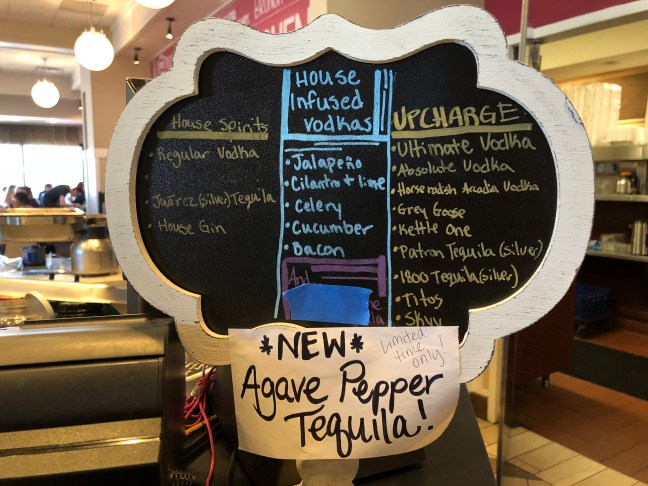 House Spirits
• Regular Vodka
• Juárez (silver) Tequila
• House Gin
House
Infused
Vodkas
• Jalapeño
• Cilantro + lime
• Celery
• Cucumber
• Bacon
And
UPCHARGE
• Ultimate Vodka
• Absolute Vodka
• Horseradish Arcadia Vodka
• Grey Goose
• Kettle One
• Patron Tequila (silver)
• 1800 Tequila (silver)
• Titos
• Skyy
*NEW*
Limited
time
only!
Agave Pepper
Tequila!